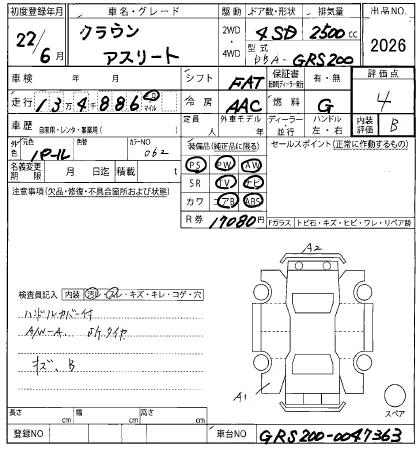 初度登録年月 車名・グレード 駆動 ドア数・形状 排気量 出品NO.
22/6月 クラウン アスリート 2WD・4WD 4 SD 2500cc 2026
型式 DBA- GRS200
車検 年 月 シフト FAT 保証書 有・無 評価点 4
走行 13万4千886 マイル 冷房 AAC 燃料 G
車歴 自家用・レンタ・事業用( ) 定員 人 外車モデル 年 ディーラー・並行 ハンドル 左・右 内装評価 B
外色 元色 パール 色替 カラーNO 062 装備品(純正品に限る) セールスポイント(正常に作動するもの)
PS PW AW
名義変更期限 月 日迄 積載 t SR TV ナビ
注意事項(欠品・修復・不具合箇所および状態) カワ エアB ABS
R券 17080円 Fガラス トビ石・キズ・ヒビ・ワレ・リペア跡
A2
検査員記入 内装 汚レ・スレ・キズ・キレ・コゲ・穴
ハンドルカバー付
A/W-A
キズ、B
A1
スペア
長さ cm 幅 cm 高さ cm
登録NO 車台NO GRS200-0047363